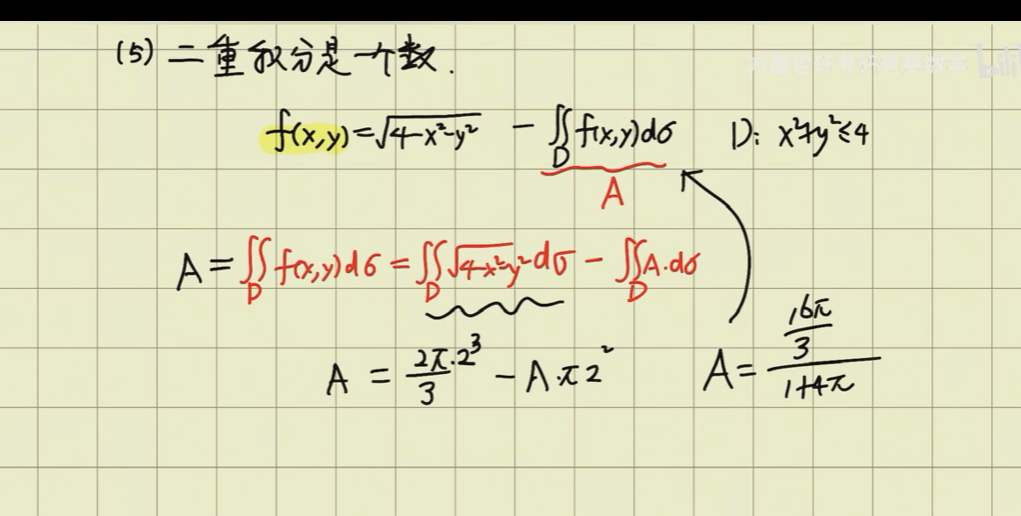 (5) 二重积分是一个数.
f(x,y)=√4-x²-y² - ∬f(x,y)dσ D: x²+y²≤4
D
A
A=∬f(x,y)dσ=∬√4-x²-y²dσ-∬A.dσ
D D D
A = 2π·2³/3 - A·π2² A= 16π/3 / 1+4π